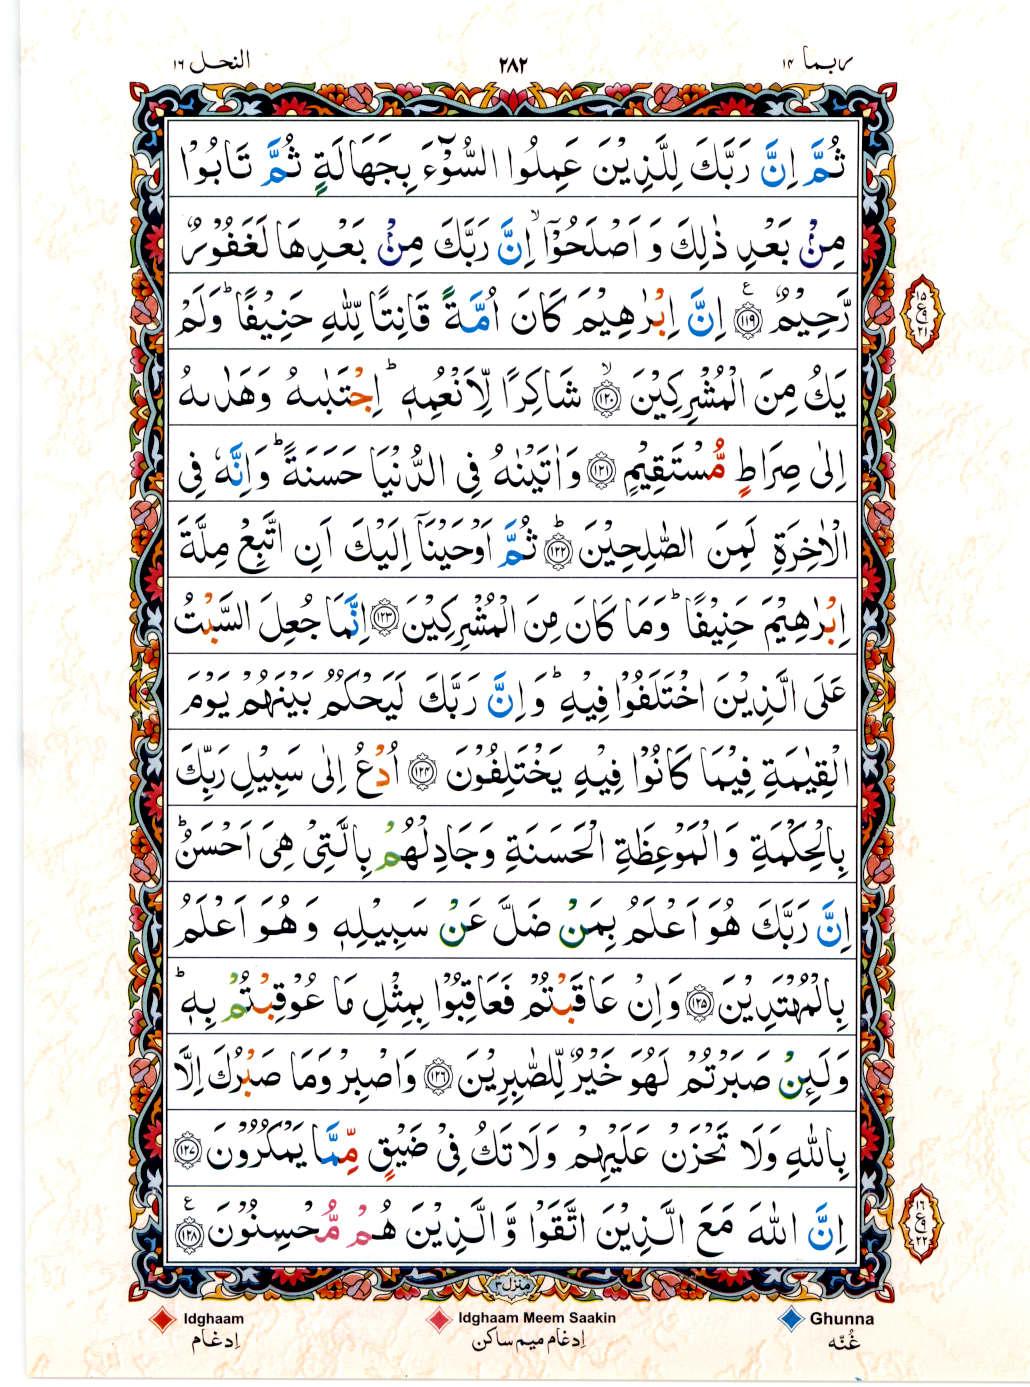 ربما ١٤
٢٨٢
النحل ١٦
ثُمَّ اِنَّ رَبَّكَ لِلَّذِيْنَ عَمِلُوا السُّوْٓءَ بِجَهَالَةٍ ثُمَّ تَابُوْا
مِنْۢ بَعْدِ ذٰلِكَ وَ اَصْلَحُوْۤا ۙ اِنَّ رَبَّكَ مِنْۢ بَعْدِهَا لَغَفُوْرٌ
رَّحِيْمٌ ﴿١١٩﴾ ع اِنَّ اِبْرٰهِيْمَ كَانَ اُمَّةً قَانِتًا لِّلّٰهِ حَنِيْفًا ؕ وَلَمْ
يَكُ مِنَ الْمُشْرِكِيْنَ ۙ﴿١٢٠﴾ شَاكِرًا لِّاَنْعُمِهٖ ؕ اِجْتَبٰىهُ وَهَدٰىهُ
اِلٰى صِرَاطٍ مُّسْتَقِيْمٍ ﴿١٢١﴾ وَاٰتَيْنٰهُ فِى الدُّنْيَا حَسَنَةً ؕ وَاِنَّهٗ فِى
الْاٰخِرَةِ لَمِنَ الصّٰلِحِيْنَ ؕ﴿١٢٢﴾ ثُمَّ اَوْحَيْنَاۤ اِلَيْكَ اَنِ اتَّبِعْ مِلَّةَ
اِبْرٰهِيْمَ حَنِيْفًا ؕ وَمَا كَانَ مِنَ الْمُشْرِكِيْنَ ﴿١٢٣﴾ اِنَّمَا جُعِلَ السَّبْتُ
عَلَى الَّذِيْنَ اخْتَلَفُوْا فِيْهِ ؕ وَاِنَّ رَبَّكَ لَيَحْكُمُ بَيْنَهُمْ يَوْمَ
الْقِيٰمَةِ فِيْمَا كَانُوْا فِيْهِ يَخْتَلِفُوْنَ ﴿١٢٤﴾ اُدْعُ اِلٰى سَبِيْلِ رَبِّكَ
بِالْحِكْمَةِ وَالْمَوْعِظَةِ الْحَسَنَةِ وَجَادِلْهُمْ بِالَّتِىْ هِىَ اَحْسَنُ ؕ
اِنَّ رَبَّكَ هُوَ اَعْلَمُ بِمَنْ ضَلَّ عَنْ سَبِيْلِهٖ وَ هُوَ اَعْلَمُ
بِالْمُهْتَدِيْنَ ﴿١٢٥﴾ وَاِنْ عَاقَبْتُمْ فَعَاقِبُوْا بِمِثْلِ مَا عُوْقِبْتُمْ بِهٖ ؕ
وَلَئِنْ صَبَرْتُمْ لَهُوَ خَيْرٌ لِّلصّٰبِرِيْنَ ﴿١٢٦﴾ وَاصْبِرْ وَمَا صَبْرُكَ اِلَّا
بِاللّٰهِ وَلَا تَحْزَنْ عَلَيْهِمْ وَلَا تَكُ فِىْ ضَيْقٍ مِّمَّا يَمْكُرُوْنَ ﴿١٢٧﴾
اِنَّ اللّٰهَ مَعَ الَّذِيْنَ اتَّقَوْا وَّ الَّذِيْنَ هُمْ مُّحْسِنُوْنَ ﴿١٢٨﴾ ع
١٥
ع
٢١
١٦
ع
٢٢
منزل ٣
Ghunna
غُنّه
Idghaam Meem Saakin
اِدغام میم ساکن
Idghaam
اِدغام